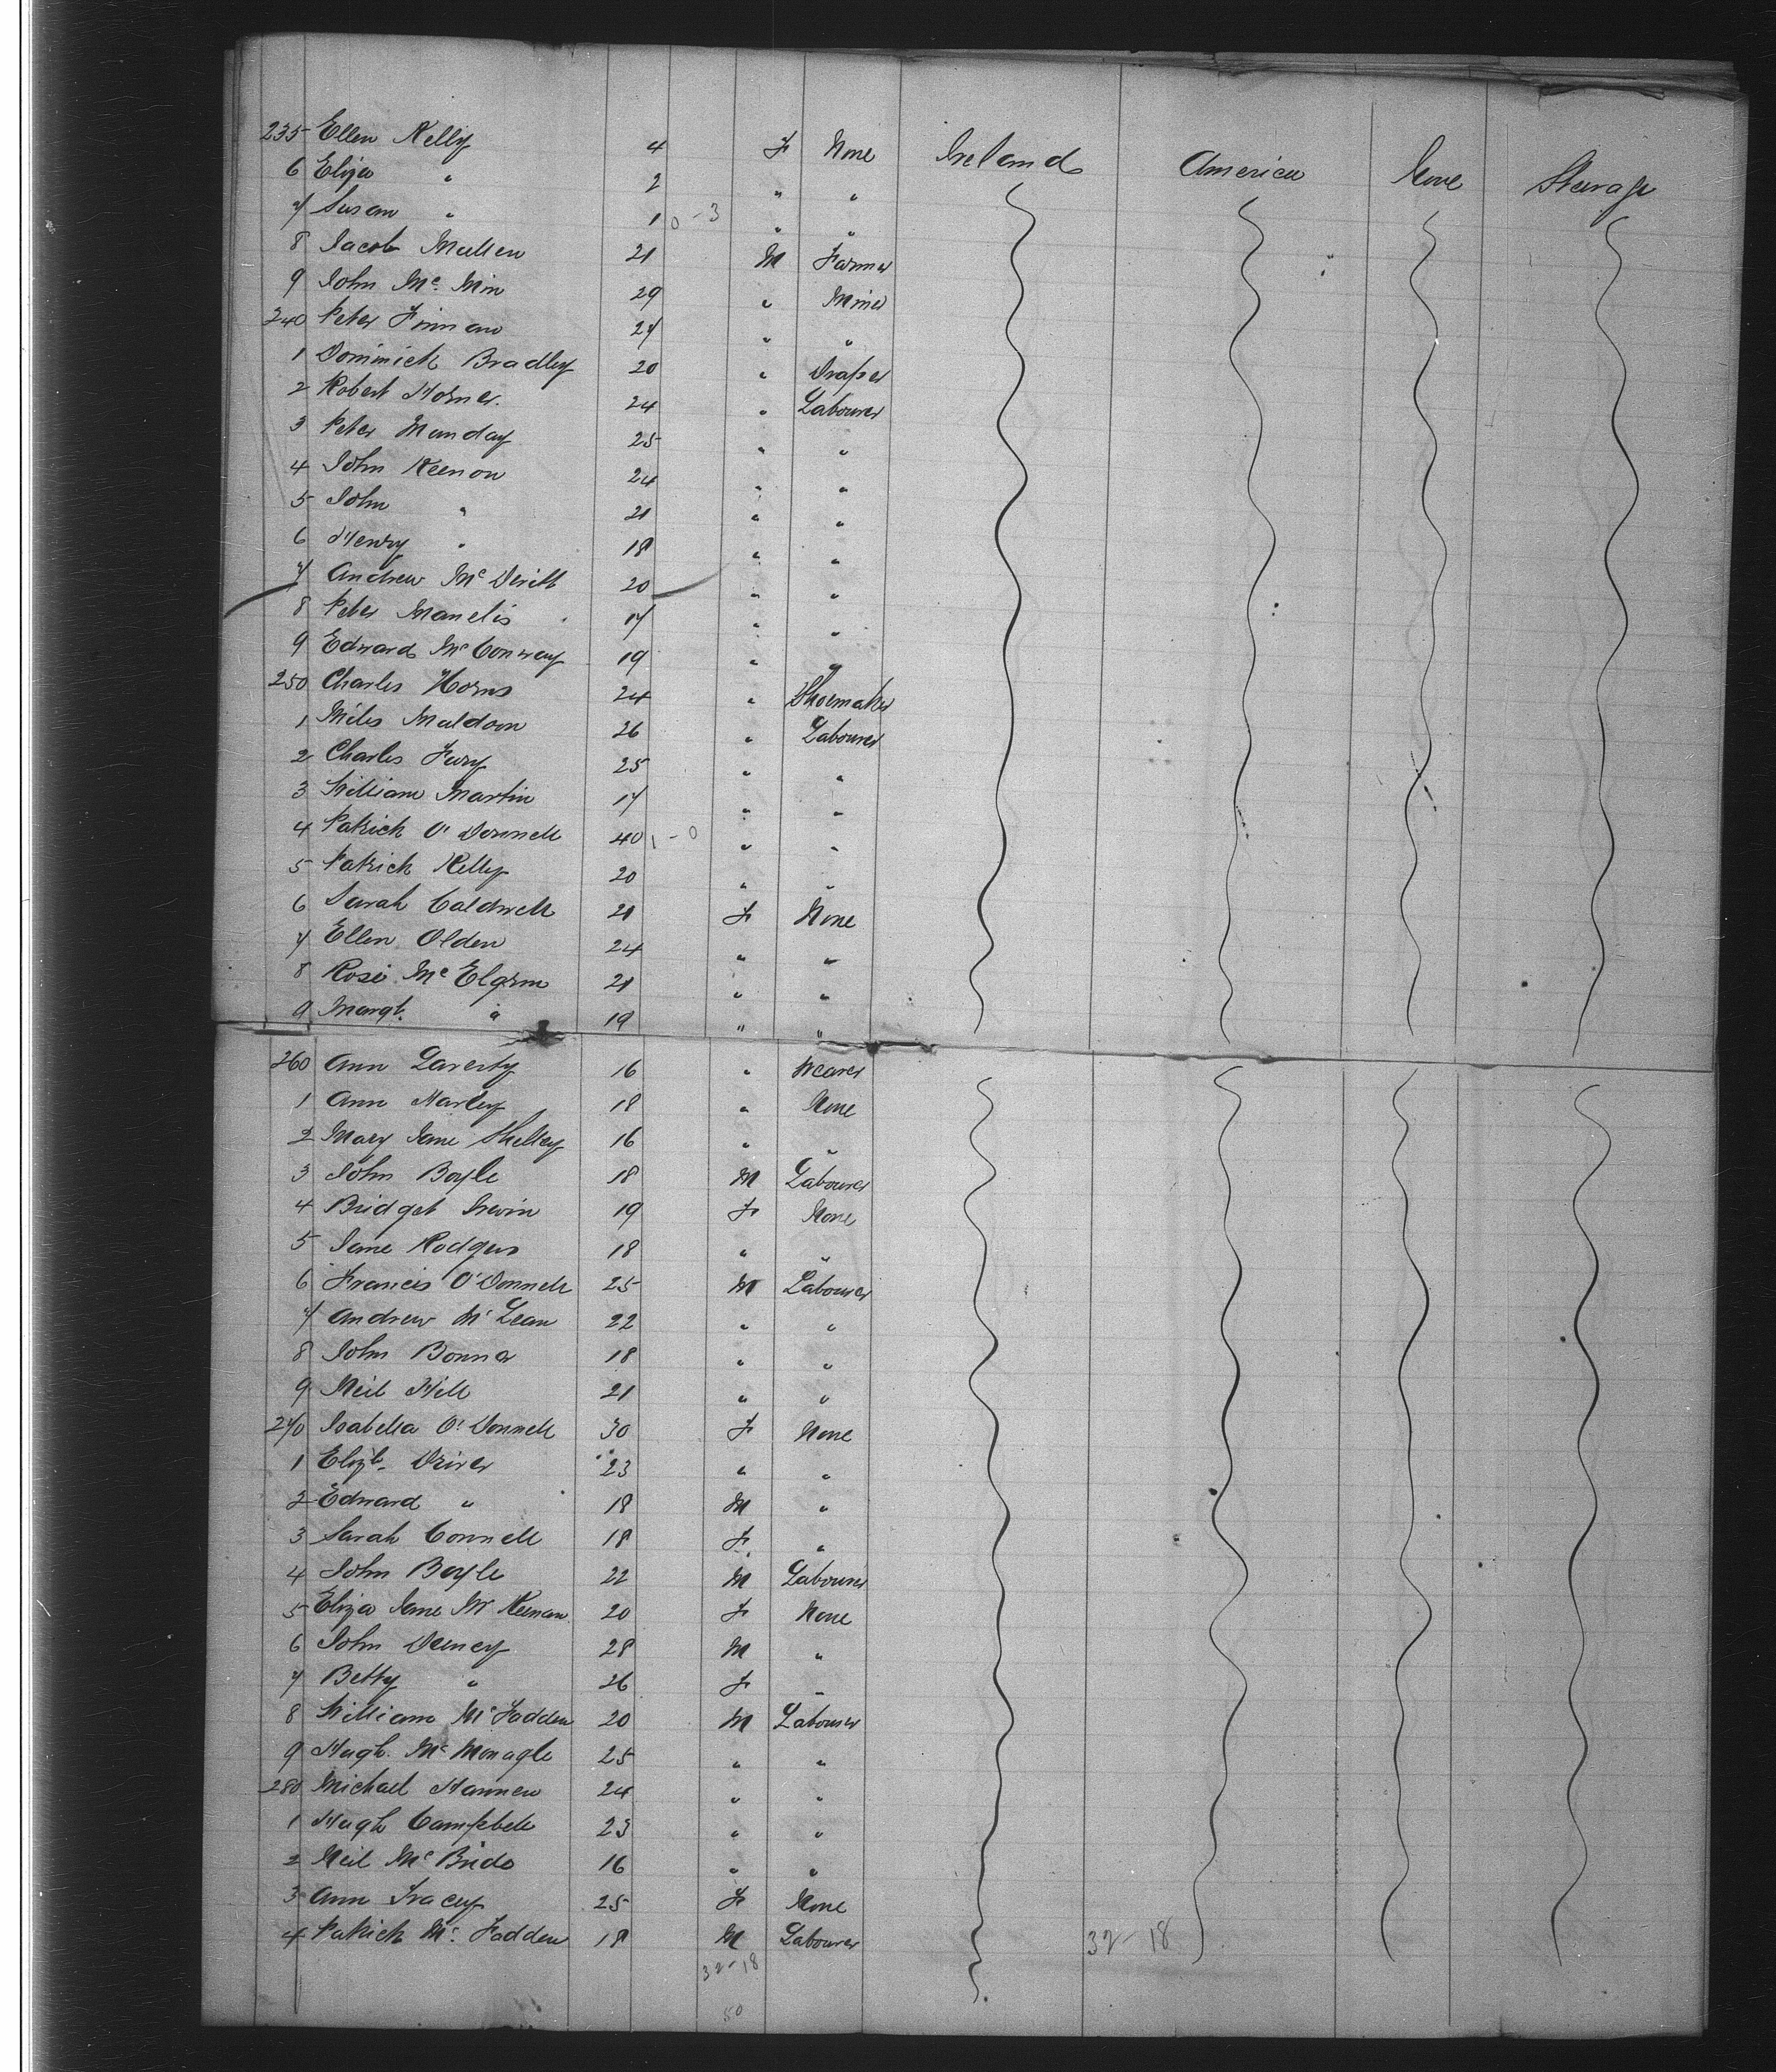 235 Ellen Kelly 4 F None Ireland America None Steerage
6 Eliza " 2 " "
7 Susan " 1 0-3 " "
8 Jacob Mullen 21 M Farmer
9 John Mc. Min 29 " Miner
240 Peter Finnan 27 " "
1 Dominick Bradley 20 " Draper
2 Robert Horner. 24 " Labourer
3 Peter Munday 25 " "
4 John Keenon 24 " "
5 John " 21 " "
6 Henry " 18 " "
7 Andrew Mc Devitt 20 " "
8 Peter Manelis 17 " "
9 Edward Mc Conway 19 " "
250 Charles Horns 24 " Shoemaker
1 Miles Muldoon 26 " Labourer
2 Charles Fury 25 " "
3 William Martin 17 " "
4 Patrick O' Donnell 40 1-0 " "
5 Patrick Kelly 20 " "
6 Sarah Caldwell 21 F None
7 Ellen Olden 24 " "
8 Rose Mc 21 " "
9 Margt. " 19 " "
260 Ann Laverty 16 " Weaver
1 Ann Harley 18 " None
2 Mary Jane Shelley 16 " "
3 John Boyle 18 M Labourer
4 Bridget Irwin 19 F None
5 Jane Rodgers 18 " "
6 Francis O'Donnell 25 M Labourer
7 Andrew Mc Lean 22 " "
8 John Bonner 18 " "
9 Neil Hill 21 " "
270 Isabella O' Donnell 30 F None
1 Elizb. Driver 23 " "
2 Edward " 18 M "
3 Sarah Connell 18 F "
4 John Boyle 22 M Labourer
5 Eliza Jane Mc Keenan 20 F None
6 John Deeney 28 M "
7 Betty " 26 F "
8 William Mc Fadden 20 M Labourer
9 Hugh. Mc Monagle 25 " "
280 Michael Hannen 24 " "
1 Hugh Campbell 23 " "
2 Neil Mc Bride 16 " "
3 Ann Tracey 25 F None
4 Patrick Mc. Fadden 18 M Labourer 32-18
32-18
50